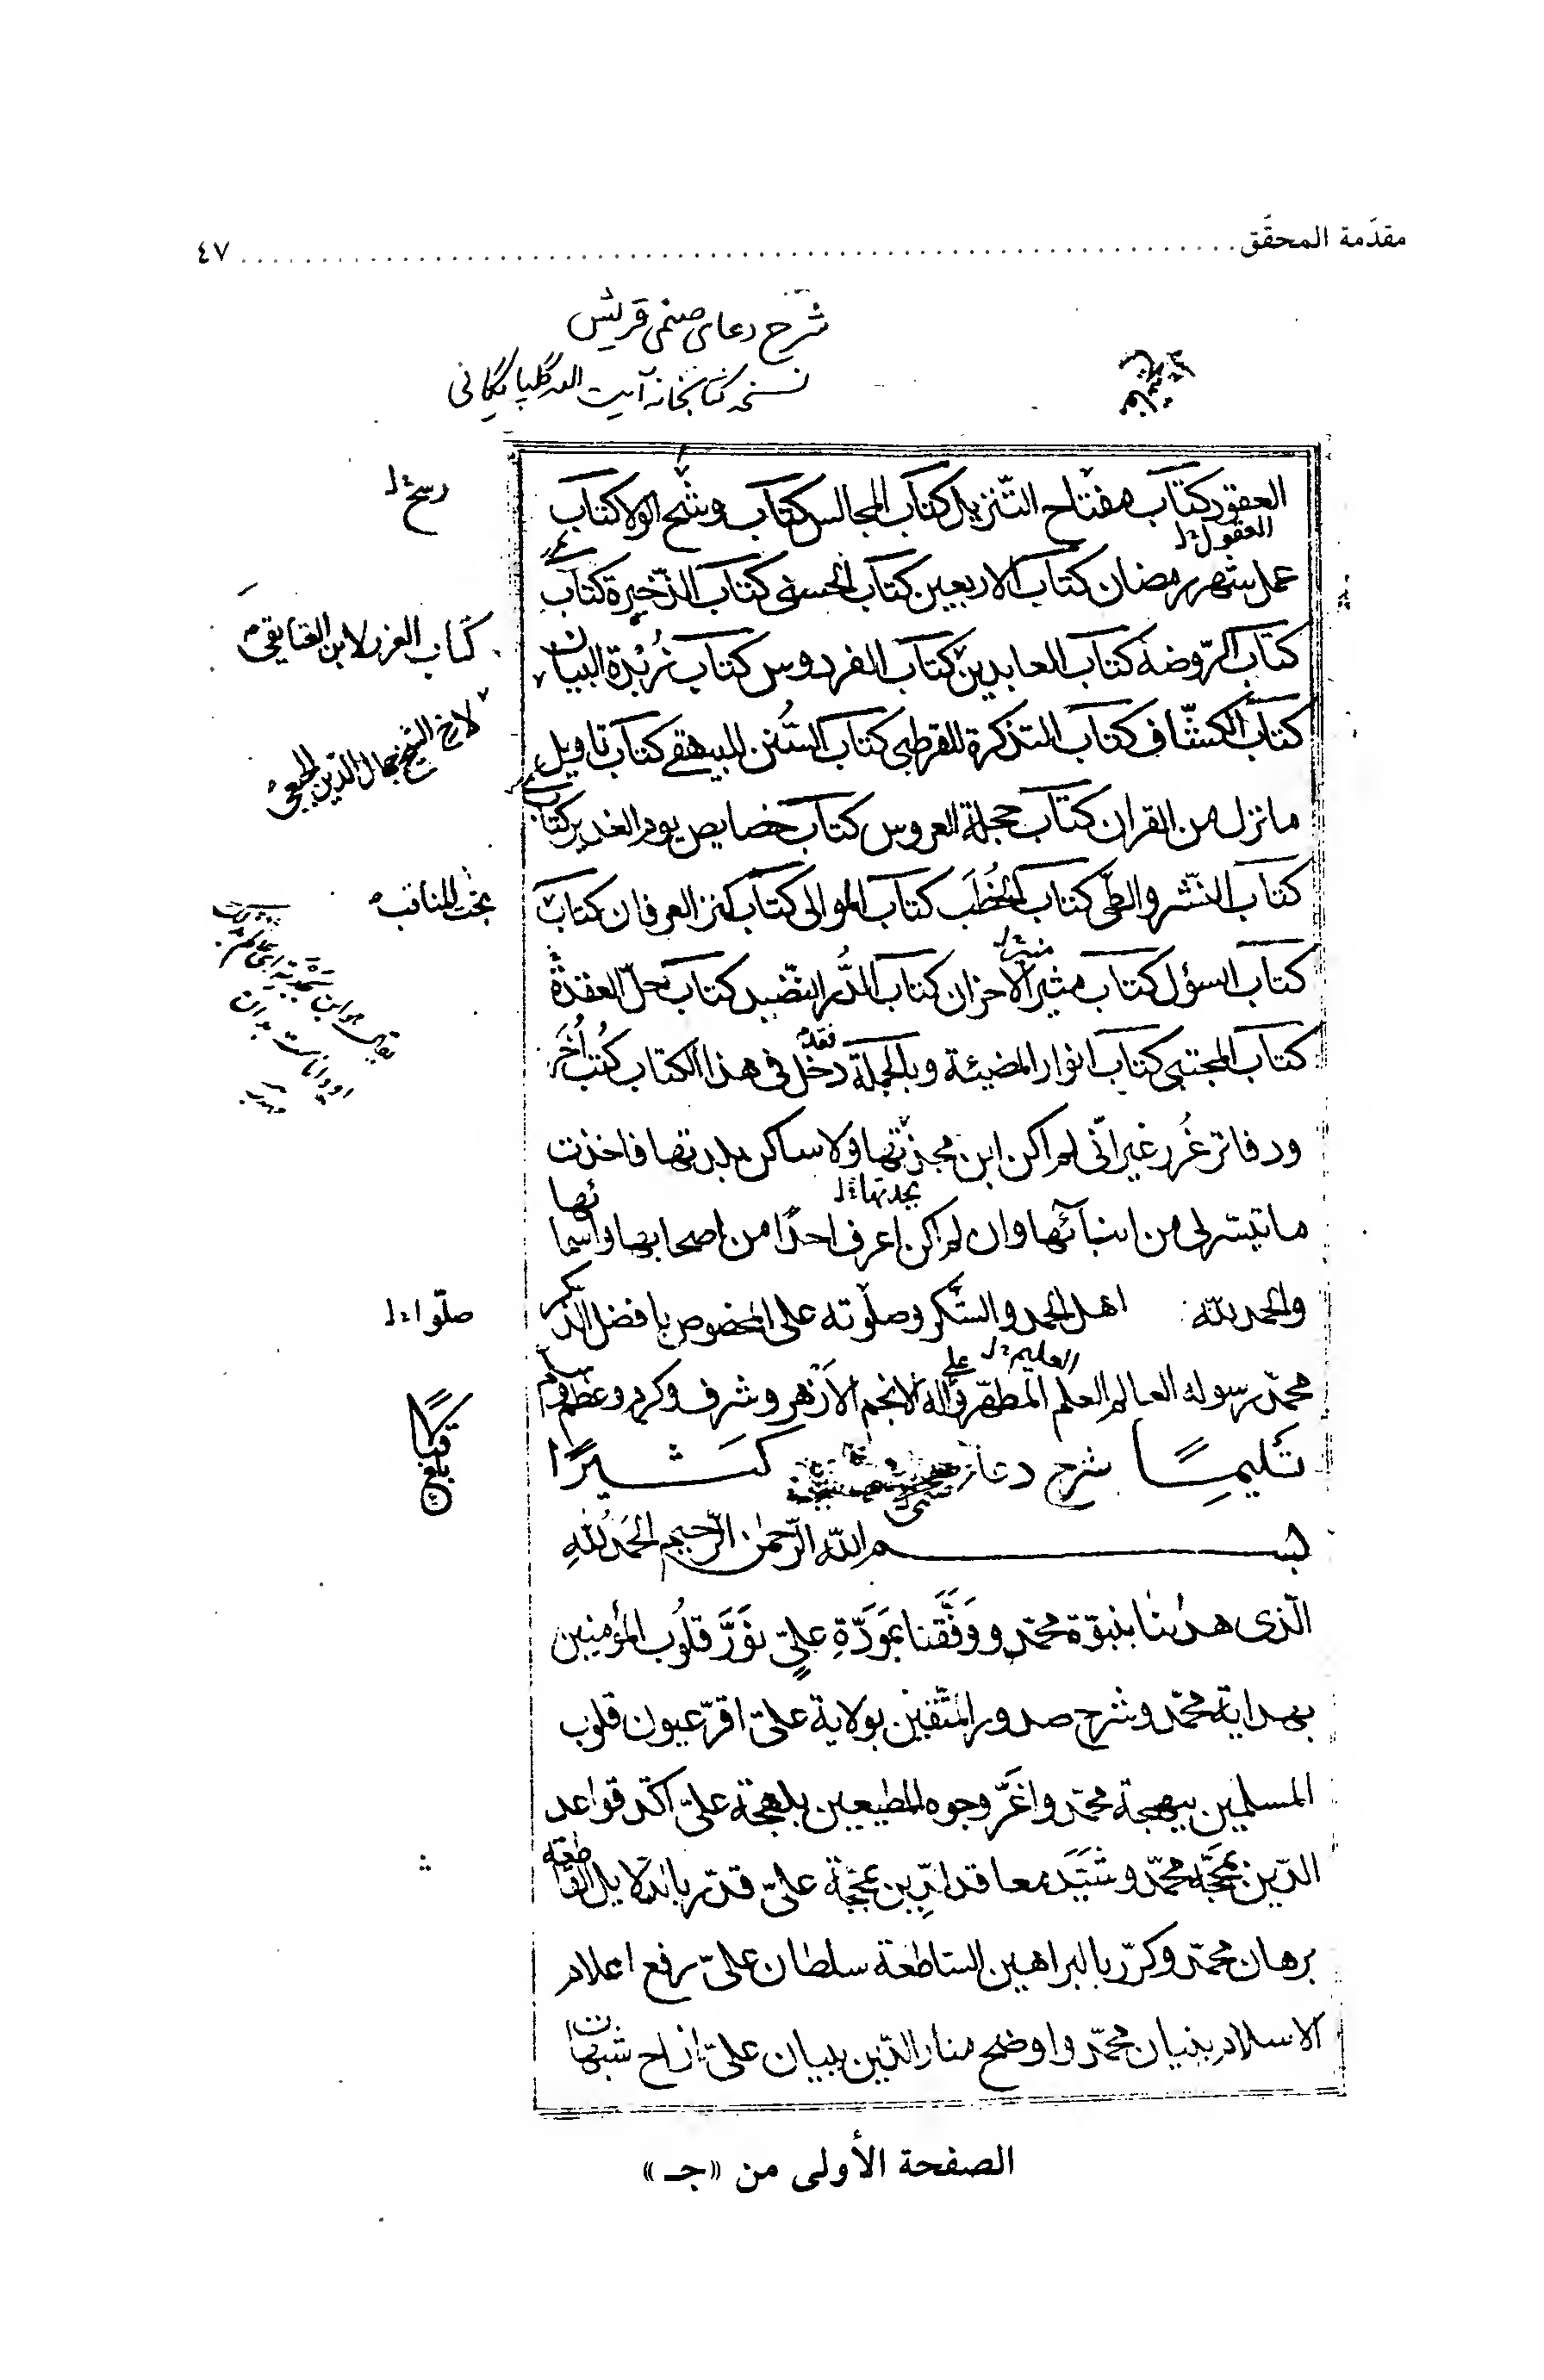 مقدّمة المحقّق ........ ٤٧
شرح دعای صنمی قریش
نسخه کتابخانه آیت الله گلپایگانی
العقود كتاب مفتاح التنزيل كتاب المجالس كتاب وشح الولا كتاب
العقول خ‌ل
عمل شهر رمضان كتاب الاربعين كتاب الحسنى كتاب الذّخيرة كتاب
كتاب الرّوضة كتاب العابدين كتاب الفردوس كتاب زُبْدة البيان
كتاب الغرر لابن العتايقي
كتاب الكشّاف كتاب التذكرة للقرطبى كتاب السُّنن للبيهقى كتاب تاويل
لاخ الشيخ جمال الدين الجبعي
ما نزل من القران كتاب حجلة العروس كتاب خصايص يوم الغدير كتاب
كتاب النّشر والطّى كتاب الخُطَب كتاب الموالى كتاب كنز العرفان كتاب
كتاب السؤل كتاب مثير الاحزان كتاب الدُّر النّضيد كتاب حلّ العقدة
كتاب المجتبى كتاب انوار المضيئة وبالجملة فقد دخل فى هذا الكتاب كُتب أُخَر
ودفاتر غُرر غير انّى لم اكن ابن مجدتها ولا ساكن بلدتها فاخذت
بجدتها خ‌ل
ما تيسّر لى من انبآئها وان لم اكن اعرف احدًا من اصحابها واسمائها
والحمد لله اهل الحمد والشّكر وصلوته على المخصوص بافضل الذّكر
صلّوا خ‌ل
العليم خ‌ل
محمّد رسوله العالم العلم المطهّر وعلى اله الانجم الازهر وشرف وكرم وعظم وسلم
تسليمًا شرح دعاء صنمى كثيرًا
بسم الله الرّحمٰن الرّحيم الحَمْدُ للهِ
الّذى هدٰينا بنبوّة محمّد ووَفَّقَنا بمَوَدَّةِ علىٍّ نوَّرَ قلُوب المؤمِنين
بهداية محمّد وشرح صدور المتّقين بولاية علىّ اقرّ عيون قلوب
المسلمين ببهجة محمّد واغَرَّ وجوه المطيعين بلهجة علىّ اكّد قواعد
الدّين بمحَجّة محمّد وشَيَّدَ معاقد الدِّين بمحجّة علىّ قدّر بالدّلايل القاطعة
برهان محمّد وكرّر بالبراهين السّاطعة سلطان علىّ رفع اعلام
الاسلام ببنيان محمّد واوضح منار الدّين ببيان علىّ ازاح شبهات
الصفحة الأولى من «جـ»